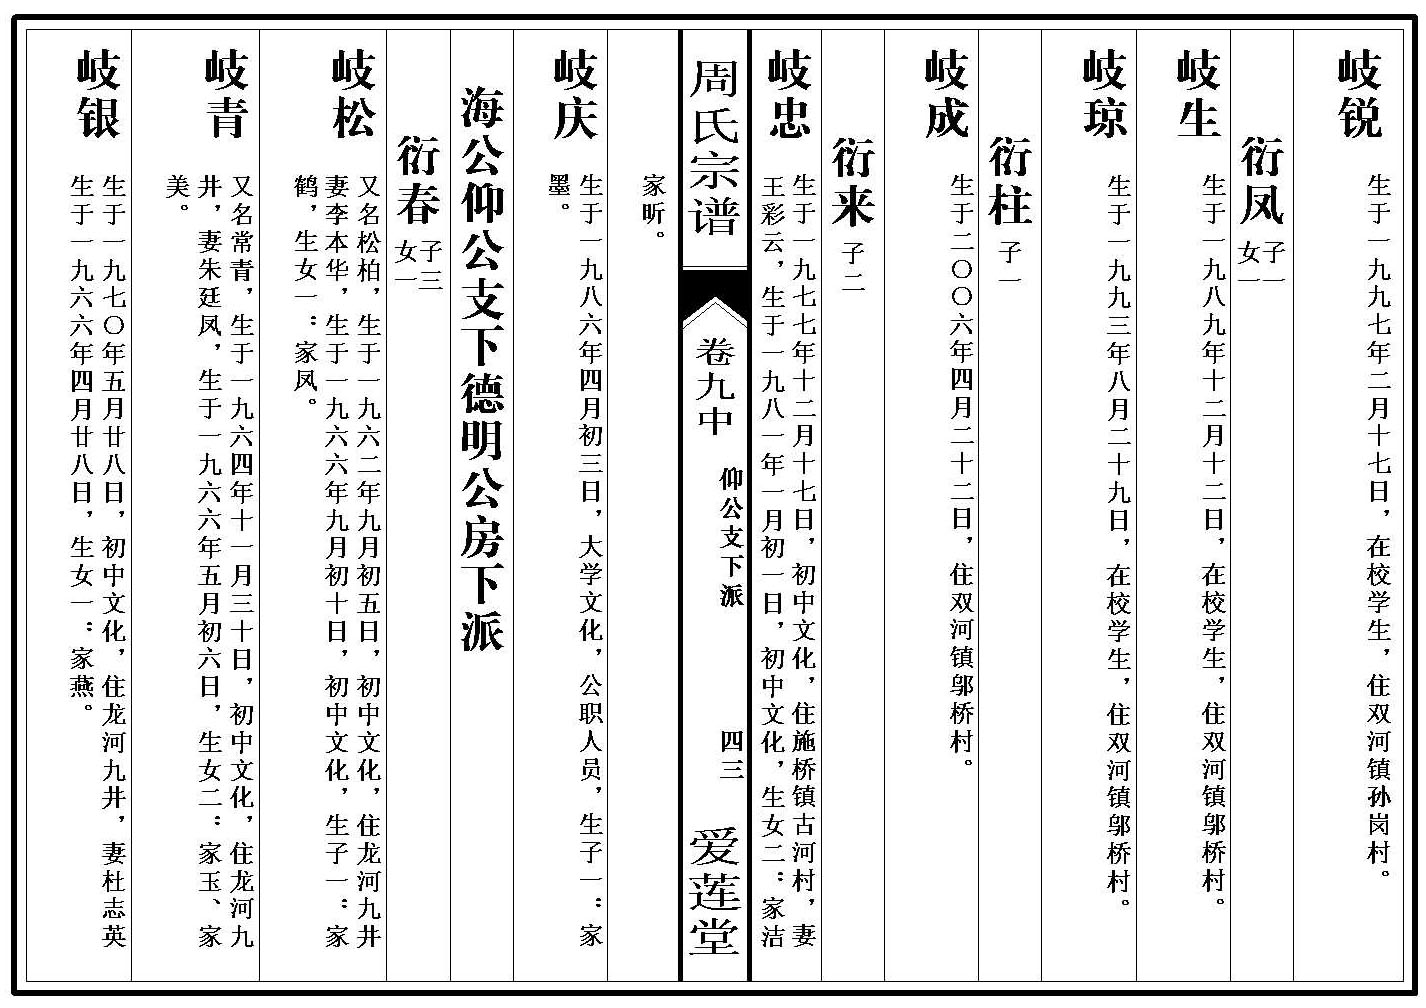 岐锐
生于一九九七年二月十七日，在校学生，住双河镇孙岗村。
衍凤
子一
女一
岐生
生于一九八九年十二月十二日，在校学生，住双河镇邬桥村。
岐琼
生于一九九三年八月二十九日，在校学生，住双河镇邬桥村。
衍柱
子一
岐成
生于二〇〇六年四月二十二日，住双河镇邬桥村。
衍来
子二
岐忠
生于一九七七年十二月十七日，初中文化，住施桥镇古河村，妻
王彩云，生于一九八一年一月初一日，初中文化，生女二：家洁
周氏宗谱
卷九中
仰公支下派
四三
爱莲堂
家昕。
岐庆
生于一九八六年四月初三日，大学文化，公职人员，生子一：家
墨。
海公仰公支下德明公房下派
衍春
子三
女一
岐松
又名松柏，生于一九六二年九月初五日，初中文化，住龙河九井
妻李本华，生于一九六六年九月初十日，初中文化，生子一：家
鹤，生女一：家凤。
岐青
又名常青，生于一九六四年十一月三十日，初中文化，住龙河九
井，妻朱廷凤，生于一九六六年五月初六日，生女二：家玉、家
美。
岐银
生于一九七〇年五月廿八日，初中文化，住龙河九井，妻杜志英
生于一九六六年四月廿八日，生女一：家燕。